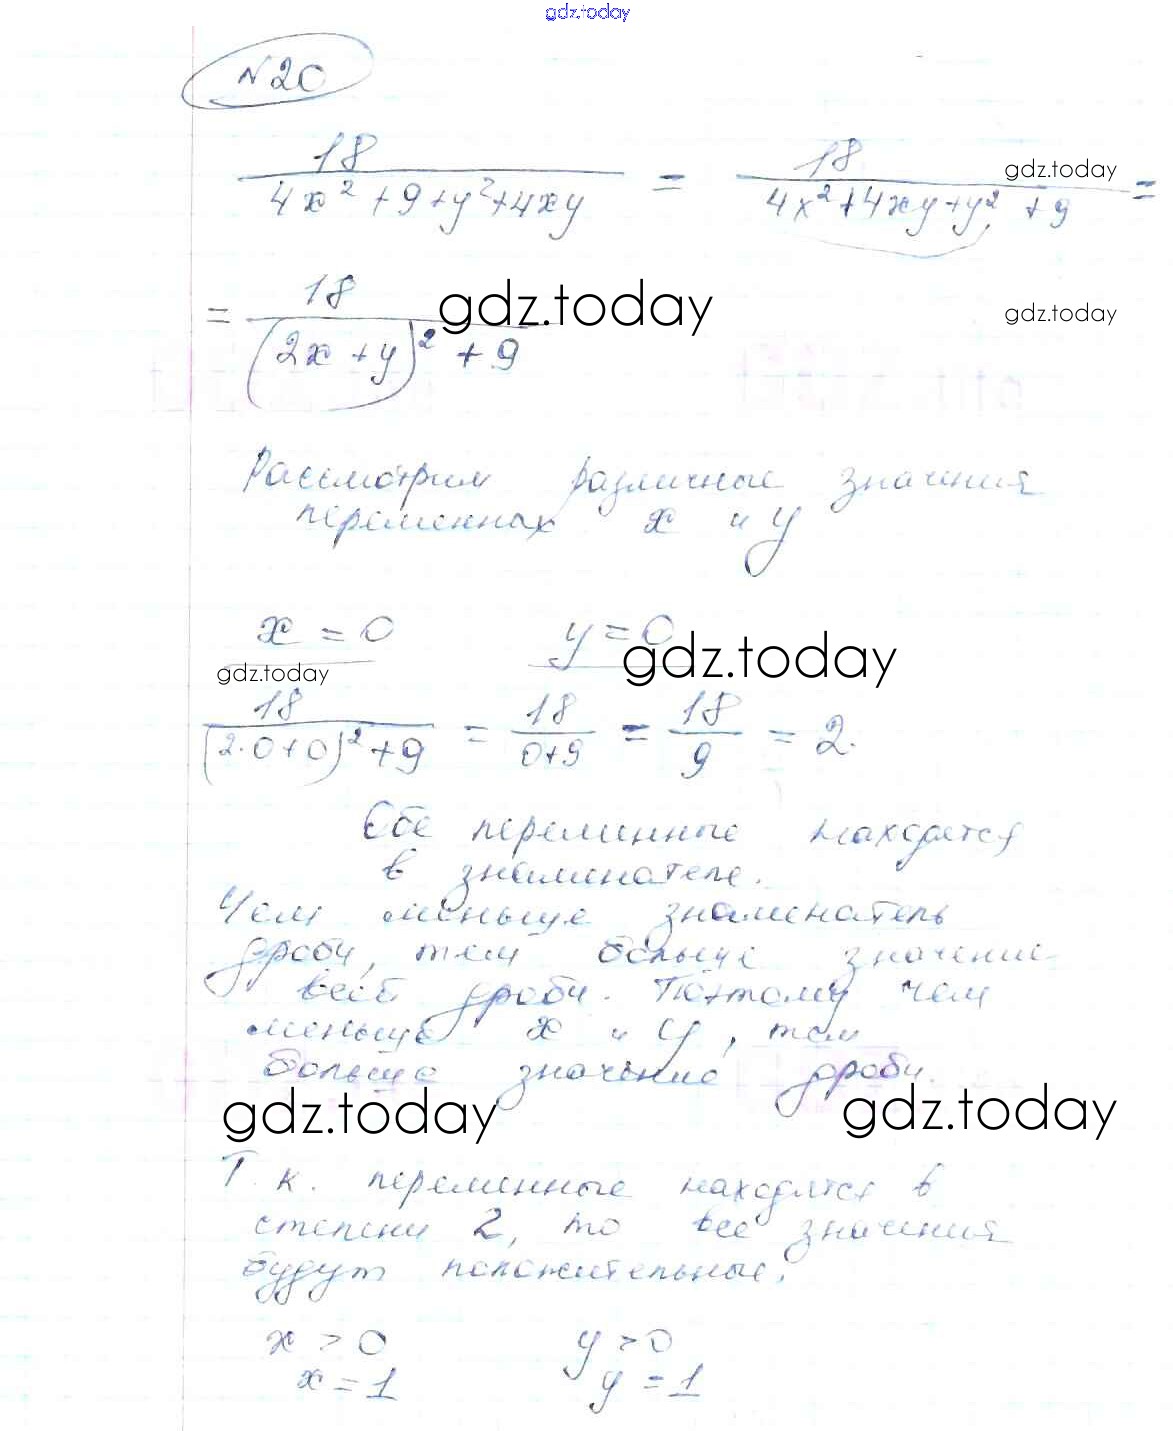 gdz.today
№20
18 / (4x² + 9 + y² + 4xy) = 18 / (4x² + 4xy + y² + 9) =
gdz.today
= 18 / ((2x + y)² + 9)
gdz.today
gdz.today
Рассмотрим различные значения
переменных x и y
x = 0 y = 0
gdz.today
gdz.today
18 / ((2·0+0)² + 9) = 18 / (0+9) = 18 / 9 = 2.
Обе переменные находятся
в знаменателе.
Чем меньше знаменатель
дроби, тем больше значение
всей дроби. Поэтому чем
меньше x и y, тем
больше значение дроби.
gdz.today
gdz.today
Т.к. переменные находятся в
степени 2, то все значения
будут положительные.
x > 0 y > 0
x = 1 y = 1